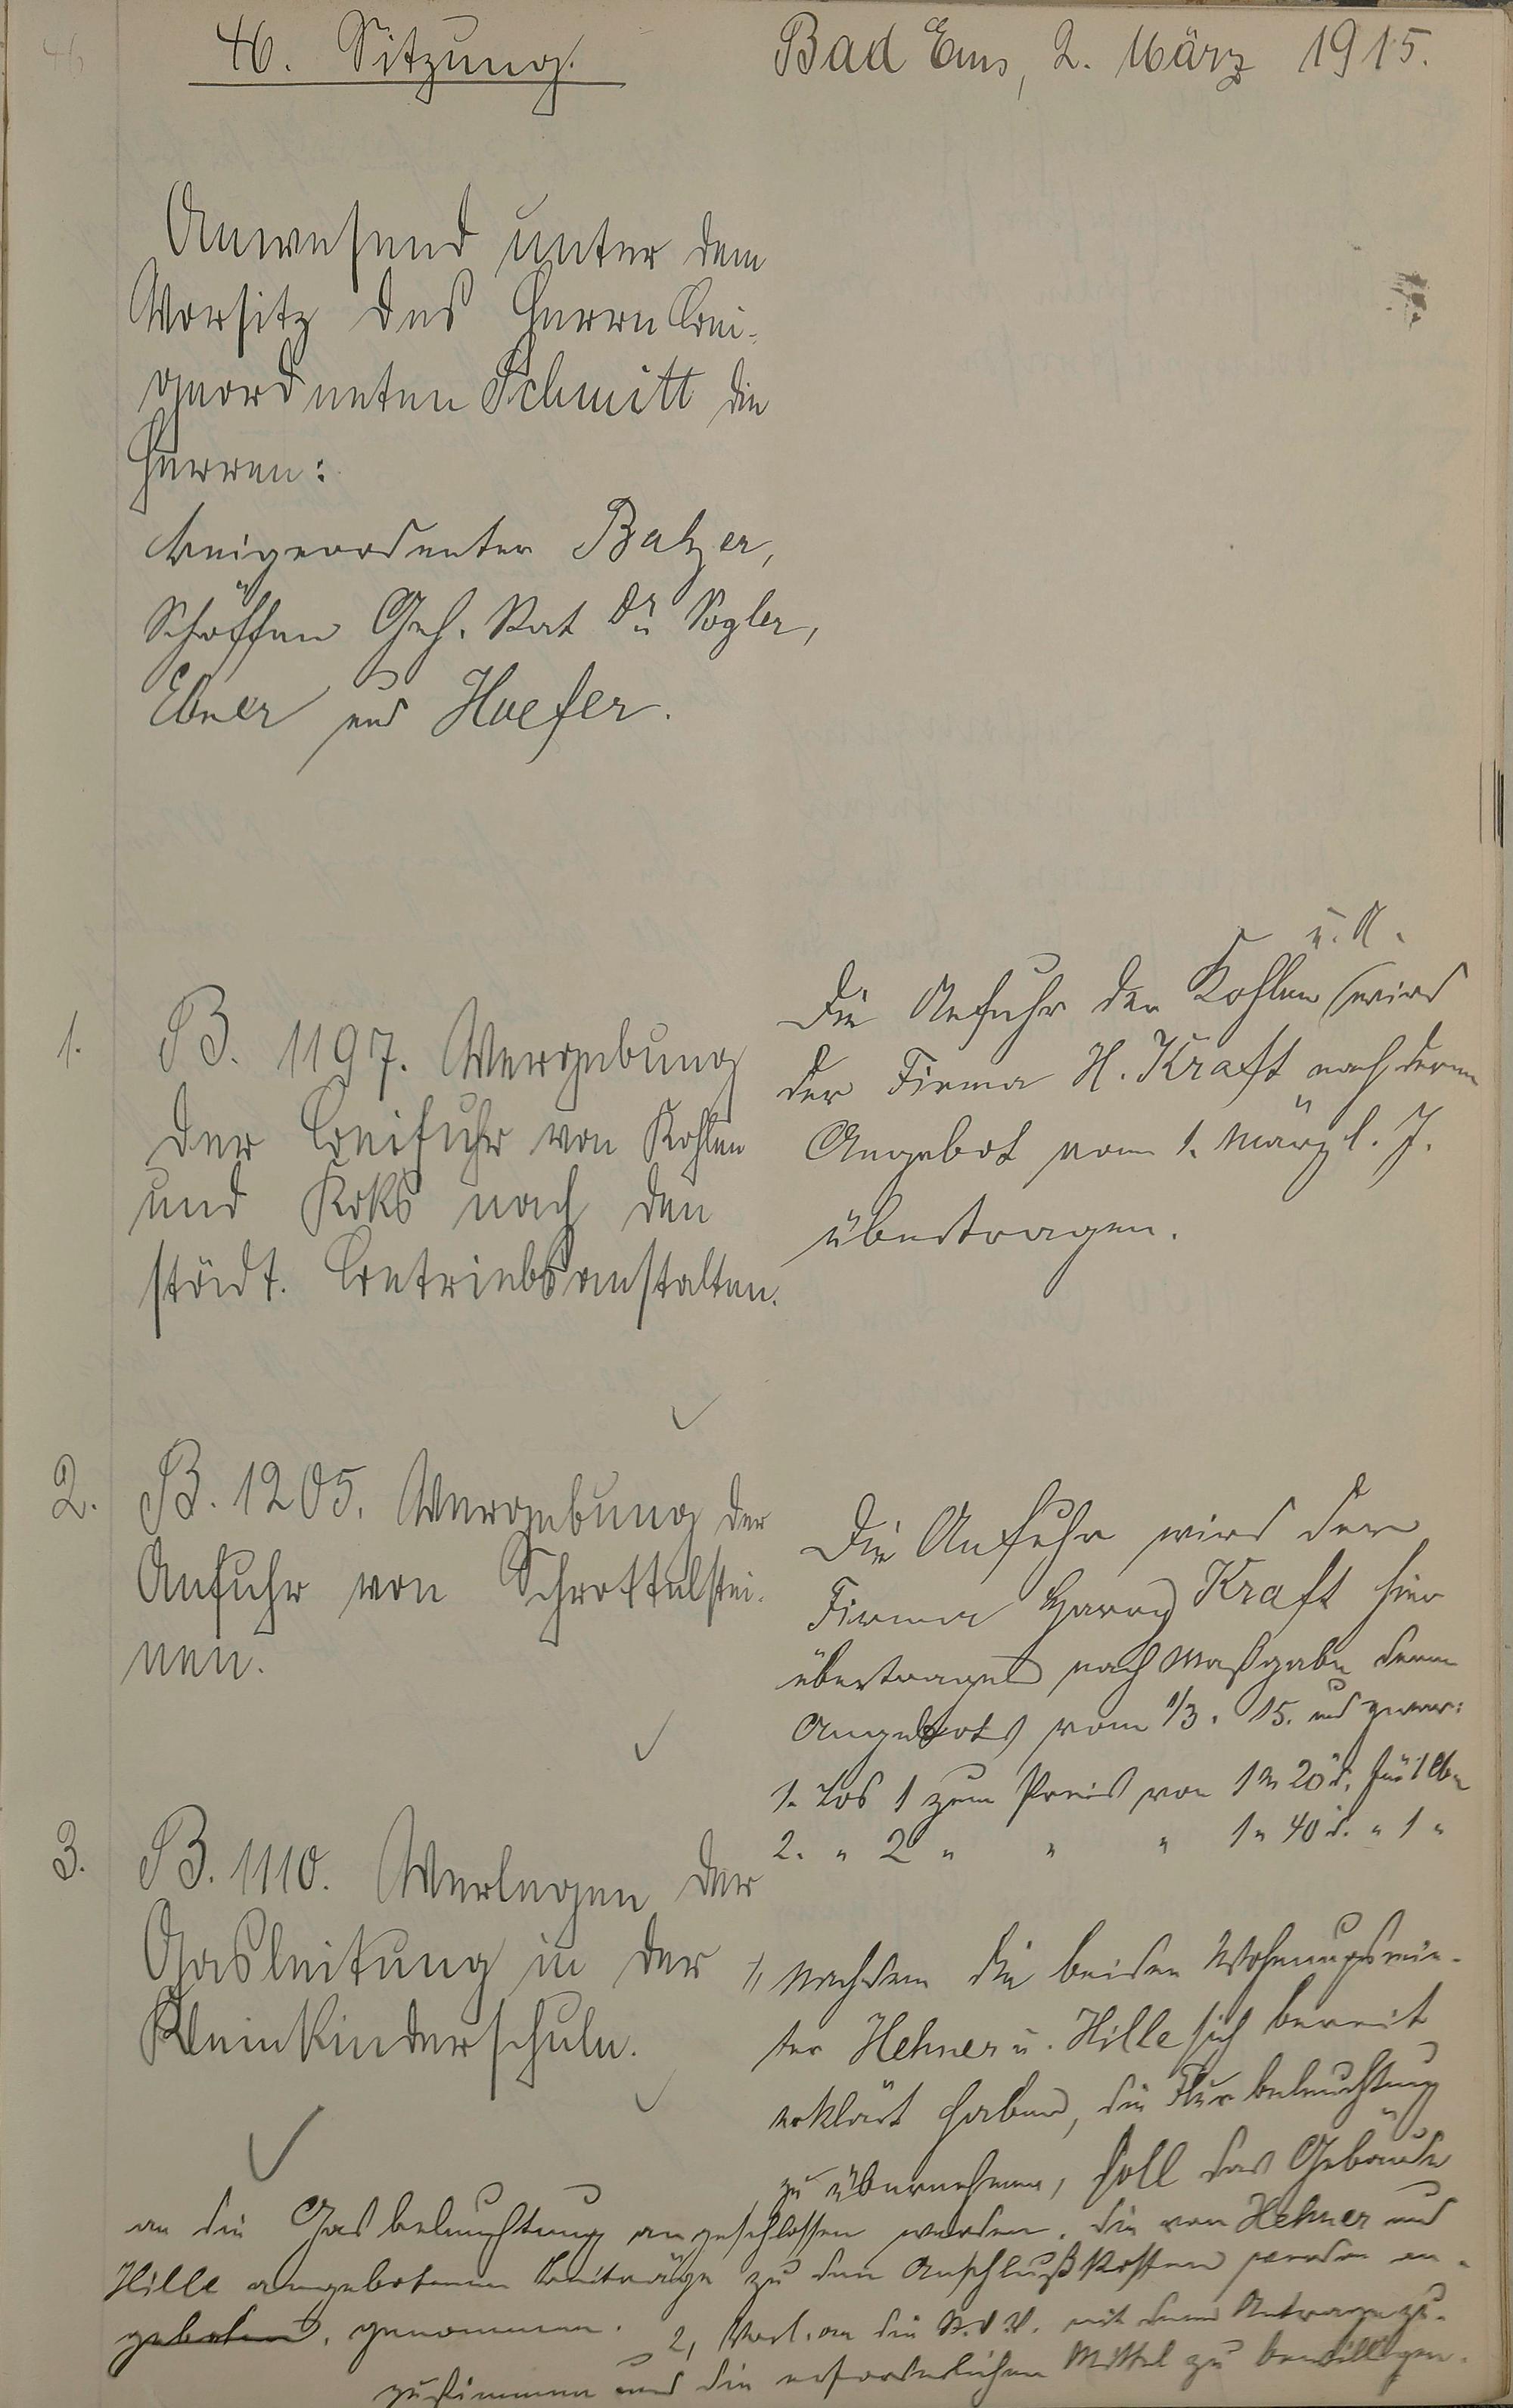 46. Sitzung.
Bad Ems, 2. März 1915.
Anwesend unter dem
Vorsitz des Herrn Bei-
geordneten Schmitt die
Herren:
Beigeordneter Balzer,
Schöffen Geh. Rat Dr. Vogler,
Ebner und Hoefer.
1.
B. 1197. Vergebung
der Beifuhr von Kohlen
und Koks nach den
städt. Betriebsanstalten.
u. K.
Die Anfuhr der Kohlen wird
der Firma H. Kraft nach deren
Angebot vom 1. März l. J.
übertragen.
2.
B. 1205. Vergebung der
Anfuhr von Schrottelstei-
nen.
Die Anfuhr wird der
Firma Harry Kraft hier
übertragen nach Maßgabe deren
Angebots vom 1/3. 15. und zwar:
1. Los 1 zum Preis von 1 M 20 d. für 1 cbm
2. " 2 " " " 1 " 40 d. " 1 "
3.
B. 1110. Verlegen der
Gasleitung in der
Kleinkinderschule.
1, Nachdem die beiden Wohnungsmie-
ter Hehner u. Hille sich bereit
erklärt haben, die Flurbeleuchtung
zu übernehmen, soll das Gebäude
an die Gasbeleuchtung angeschlossen werden. Die von Hehner und
Hille angebotenen Beiträge zu den Anschlußkosten werden an-
geboten. genommen. 2, Vorl. an die St. V. V. mit dem Antrage zu-
zustimmen und die erforderlichen Mittel zu bewilligen.